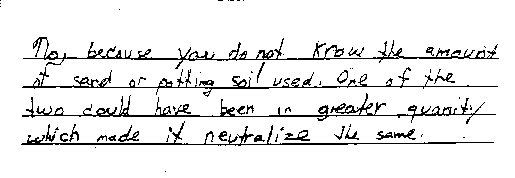 No, because you do not know the amount
of sand or potting soil used. One of the
two could have been in greater quanity
which made it neutralize the same.